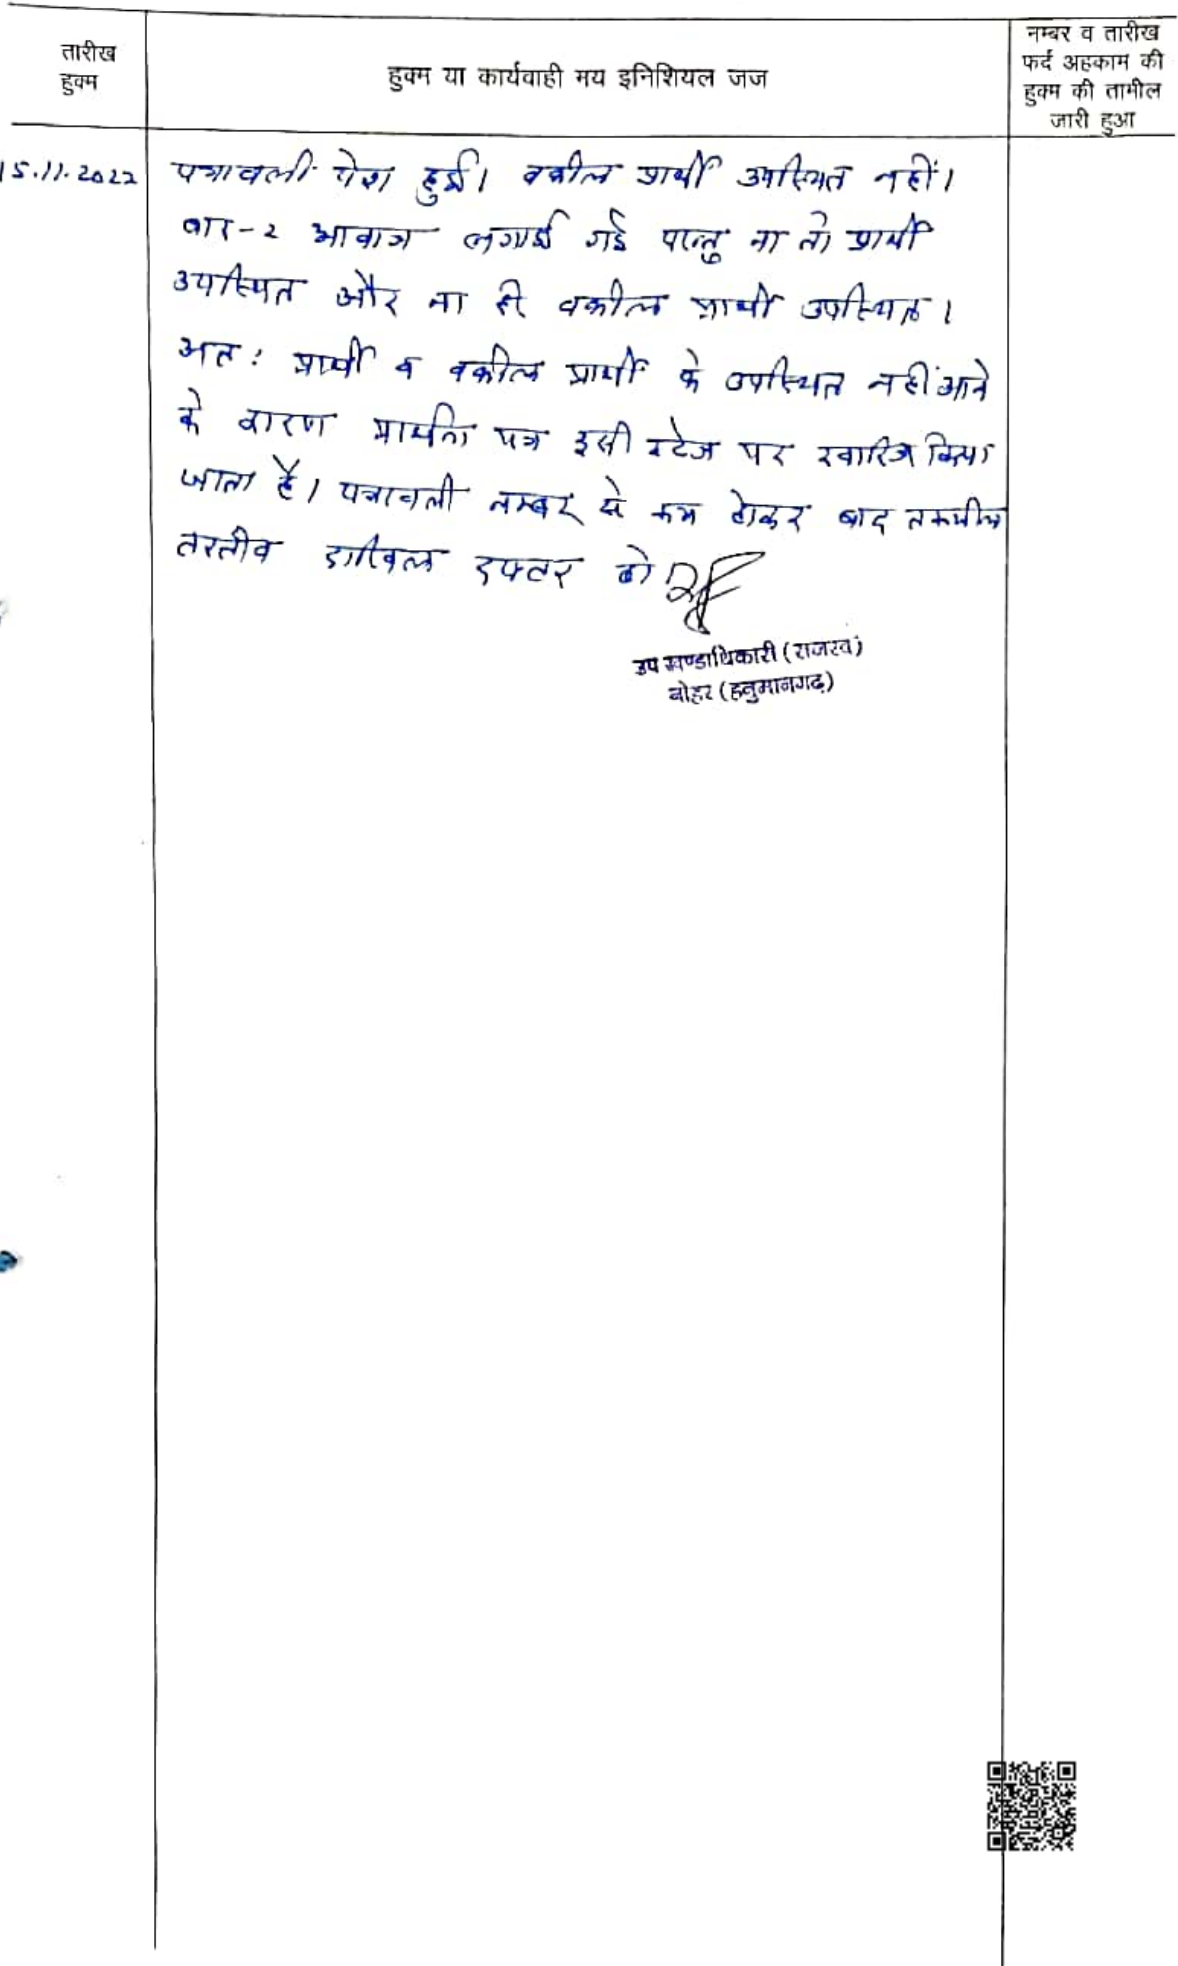 तारीख
हुक्म
हुक्म या कार्यवाही मय इनिशियल जज
नम्बर व तारीख
फर्द अहकाम की
हुक्म की तामील
जारी हुआ
15.11.2022
पत्रावली पेश हुई। वकील प्रार्थी उपस्थित नहीं।
बार-2 आवाज लगाई गई परन्तु ना तो प्रार्थी
उपस्थित और ना ही वकील प्रार्थी उपस्थित।
अतः प्रार्थी व वकील प्रार्थी के उपस्थित नहीं आने
के कारण प्रार्थना पत्र इसी स्टेज पर खारिज किया
जाता है। पत्रावली नम्बर से कम होकर बाद तकमील
तरतीब दाखिल दफ्तर हो
उप खण्डाधिकारी (राजस्व)
नोहर (हनुमानगढ़)